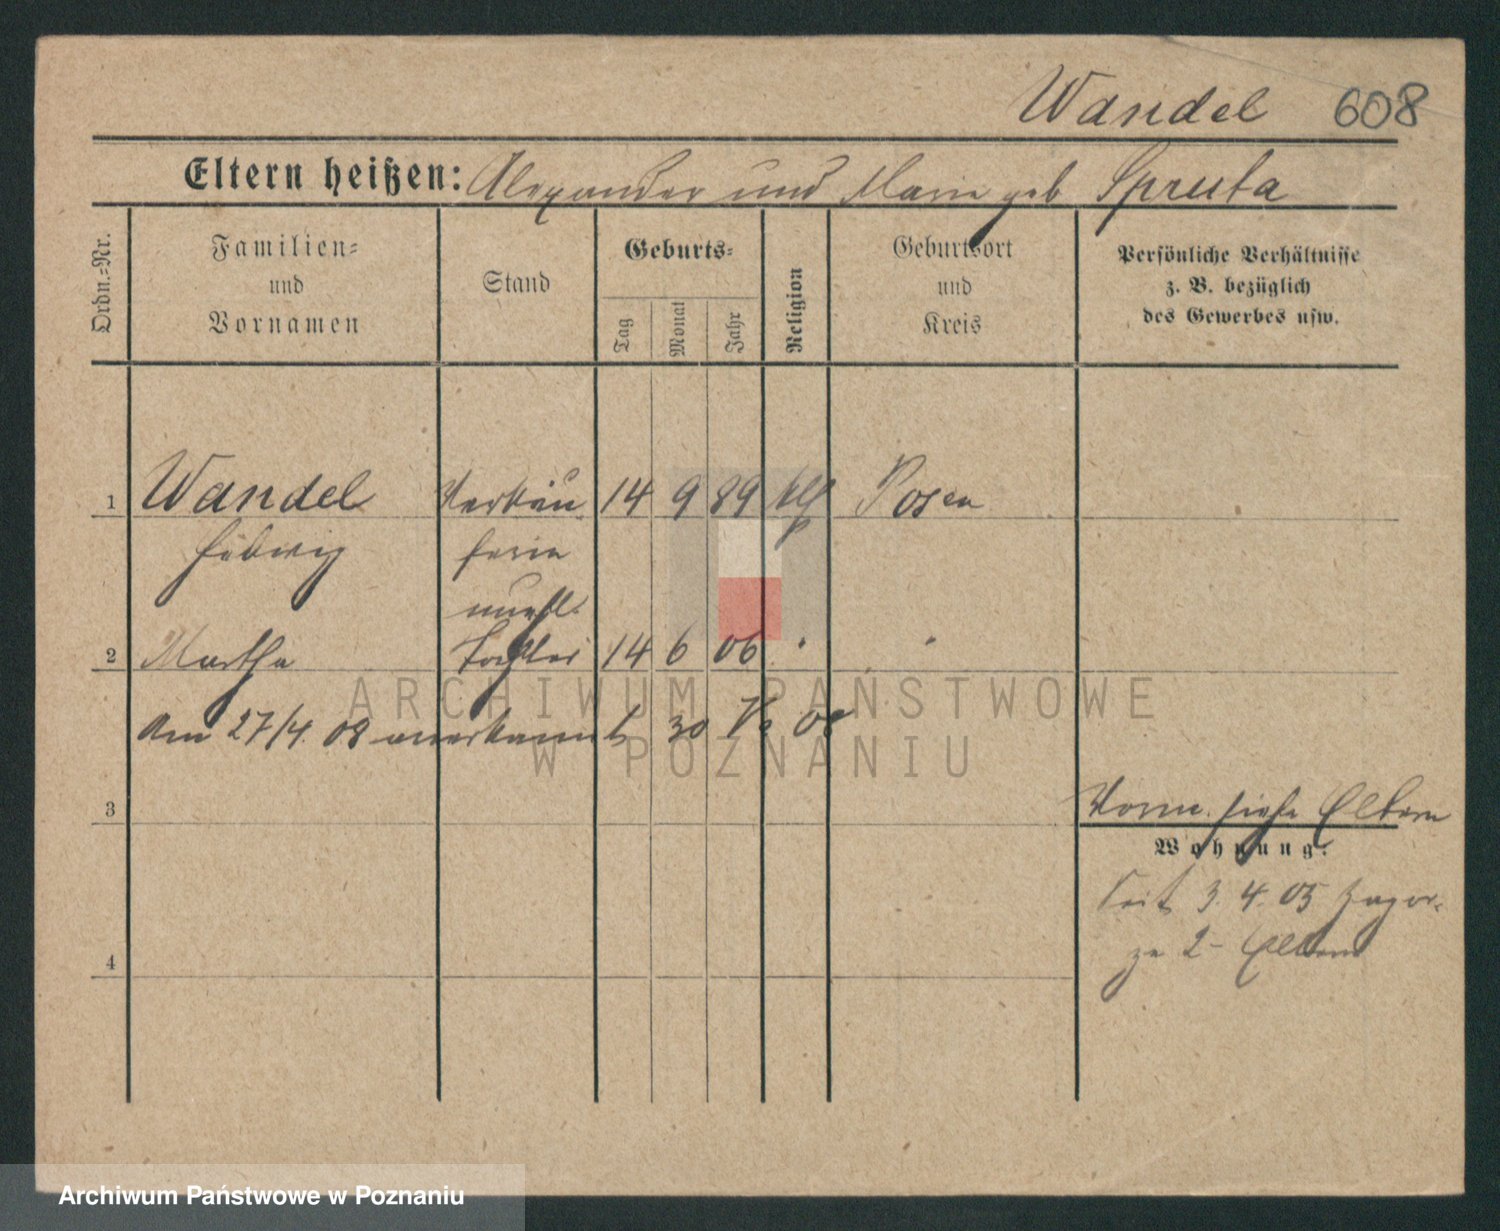 Wandel 608
Eltern heißen: Alexander und Marie geb Spruta
Ordn.=Nr.
Familien=
und
Vornamen
Stand
Geburts=
Tag
Monat
Jahr
Religion
Geburtsort
und
Kreis
Persönliche Verhältnisse
z. B. bezüglich
des Gewerbes usw.
1 Wandel Verkäu 14 9 89 Posen
Hedwig ferin
unehl.
2 Martha Tochter 14 6 06 " "
Am 27/4. 08 anerkannt 30 08
3
Vorm. siehe Eltern
Wohnung:
Seit 3. 4. 05 Zagor=
ze 2 - Eltern
4
ARCHIWUM PAŃSTWOWE
W POZNANIU
Archiwum Państwowe w Poznaniu